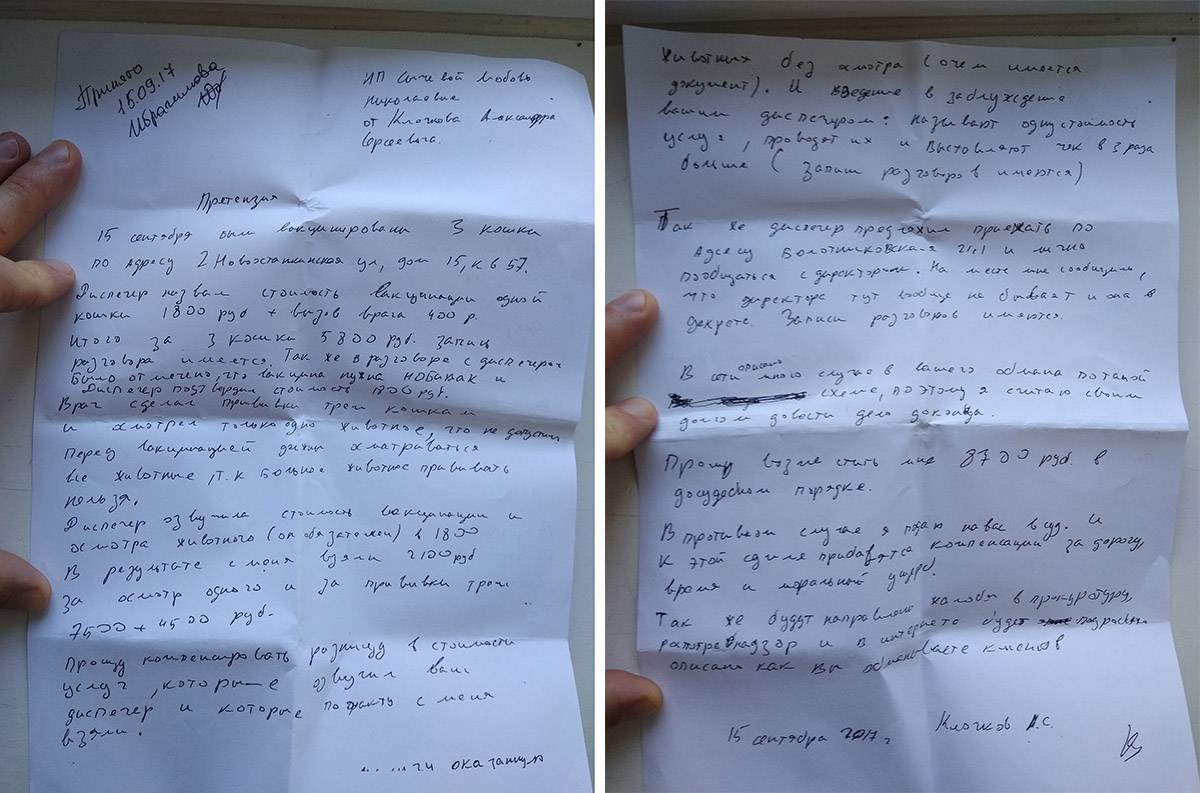 Принято
15.09.17
Ибрагимова
ИП Сычевой Любовь
Николаевне
от Клочкова Александра
Сергеевича.
Претензия
15 сентября были вакцинированы 3 кошки
по адресу 2 Новоостанкинская ул, дом 15, кв 57.
Диспечер назвал стоимость вакцинации одной
кошки 1800 руб + вызов врача 400 р.
Итого за 3 кошки 5800 руб. запись
разговора имеется. Так же в разговоре с диспечером
было отмечено, что вакцина нужна НОБИВАК и
Диспечер подтвердил стоимость 1800 руб.
Врач сделал прививки трем кошкам
и осмотрел только одно животное, что не допустимо
Перед вакцинацией должны осматриваться
все животные, т.к больное животное прививать
нельзя.
Диспечер озвучила стоимость вакцинации и
осмотра животного (он обязателен) в 1800
В результате с меня взяли 2100 руб
за осмотр одного и за прививки троим
7500 + 4500 руб.
Прошу компенсировать разницу в стоимости
услуг, которые озвучил ваш
диспечер и которые по факту с меня
взяли.
оказании
животных без осмотра (о чем имеется
документ). И введение в заблуждение
вашим диспечером: называют одну стоимость
услуг, проводят их и выставляют чек в 3 раза
больше (записи разговоров имеются)
Так же диспечер предложил приехать по
адресу Болотниковская 21с1 и лично
пообщаться с директором. На месте мне сообщили,
что директора тут вообще не бывает и она в
декрете. Записи разговоров имеются.
В сети описано много случаев вашего обмана по такой
схеме, поэтому я считаю своим
долгом довести дело до конца.
Прошу возместить мне 8700 руб. в
досудебном порядке.
В противном случае я подаю на вас в суд. И
к этой сумме прибавятся компенсации за дорогу,
время и моральный ущерб.
Так же будут направлены жалобы в прокуратуру,
роспотребнадзор и в интернете будет подробно
описано как вы обманываете клиентов
15 сентября 2017г Клочков А.С.